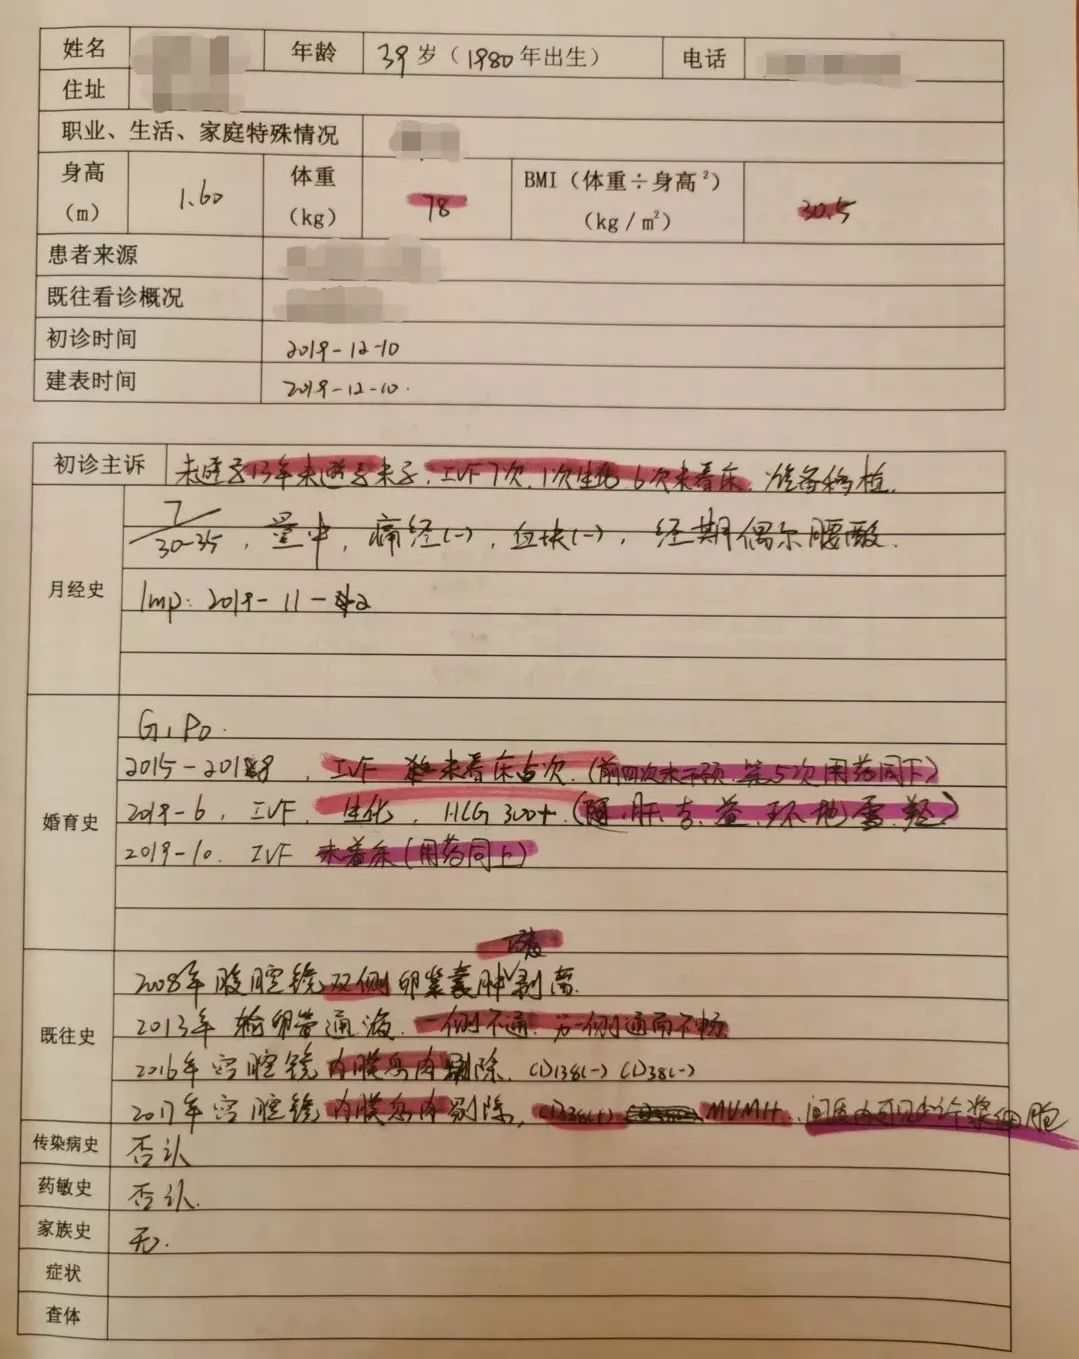 姓名 年龄 39岁（1980年出生） 电话
住址
职业、生活、家庭特殊情况
身高（m） 1.60 体重（kg） 78 BMI（体重÷身高²）（kg/m²） 30.5
患者来源
既往看诊概况
初诊时间 2019-12-10
建表时间 2019-12-10.
初诊主诉 未避孕13年未避孕未孕，IVF7次，1次生化，6次未着床，准备移植.
月经史 7/30-35，量中，痛经(-)，血块(-)，经期偶尔腰酸.
lmp：2019-11-2
婚育史 G1P0.
2015-2018，IVF 未着床5次.（前四次未干预，第5次用药同下）
2019-6，IVF，生化，HCG 300+.（阿、肝、吉、益、环、地、雪、羟）
2019-10. IVF 未着床（用药同上）
既往史 2008年腹腔镜双侧卵巢囊肿巧囊剥离.
2013年 输卵管通液，一侧不通，另一侧通而不畅
2016年宫腔镜内膜息肉剔除，CD138(-) CD38(-)
2017年宫腔镜内膜息肉剔除，CD38(+) MUM(+)，间质内可见 个浆细胞
传染病史 否认
药敏史 否认.
家族史 无.
症状
查体